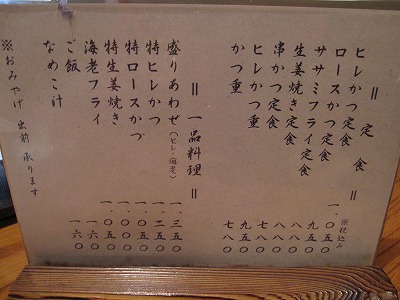 ＝ 定食 ＝
※税込み
ヒレかつ定食 一、〇五〇
ロースかつ定食 九五〇
ササミフライ定食 九五〇
生姜焼き定食 八八〇
串かつ定食 八八〇
ヒレかつ重 九五〇
かつ重 七八〇
＝ 一品料理 ＝
盛りあわせ(ヒレ・海老) 一、三五〇
特ヒレかつ 一、二五〇
特ロースかつ 一、〇〇〇
特生姜焼き 一、〇五〇
海老フライ 一、〇五〇
ご飯 一六〇
なめこ汁 一六〇
※おみやげ 出前 承ります